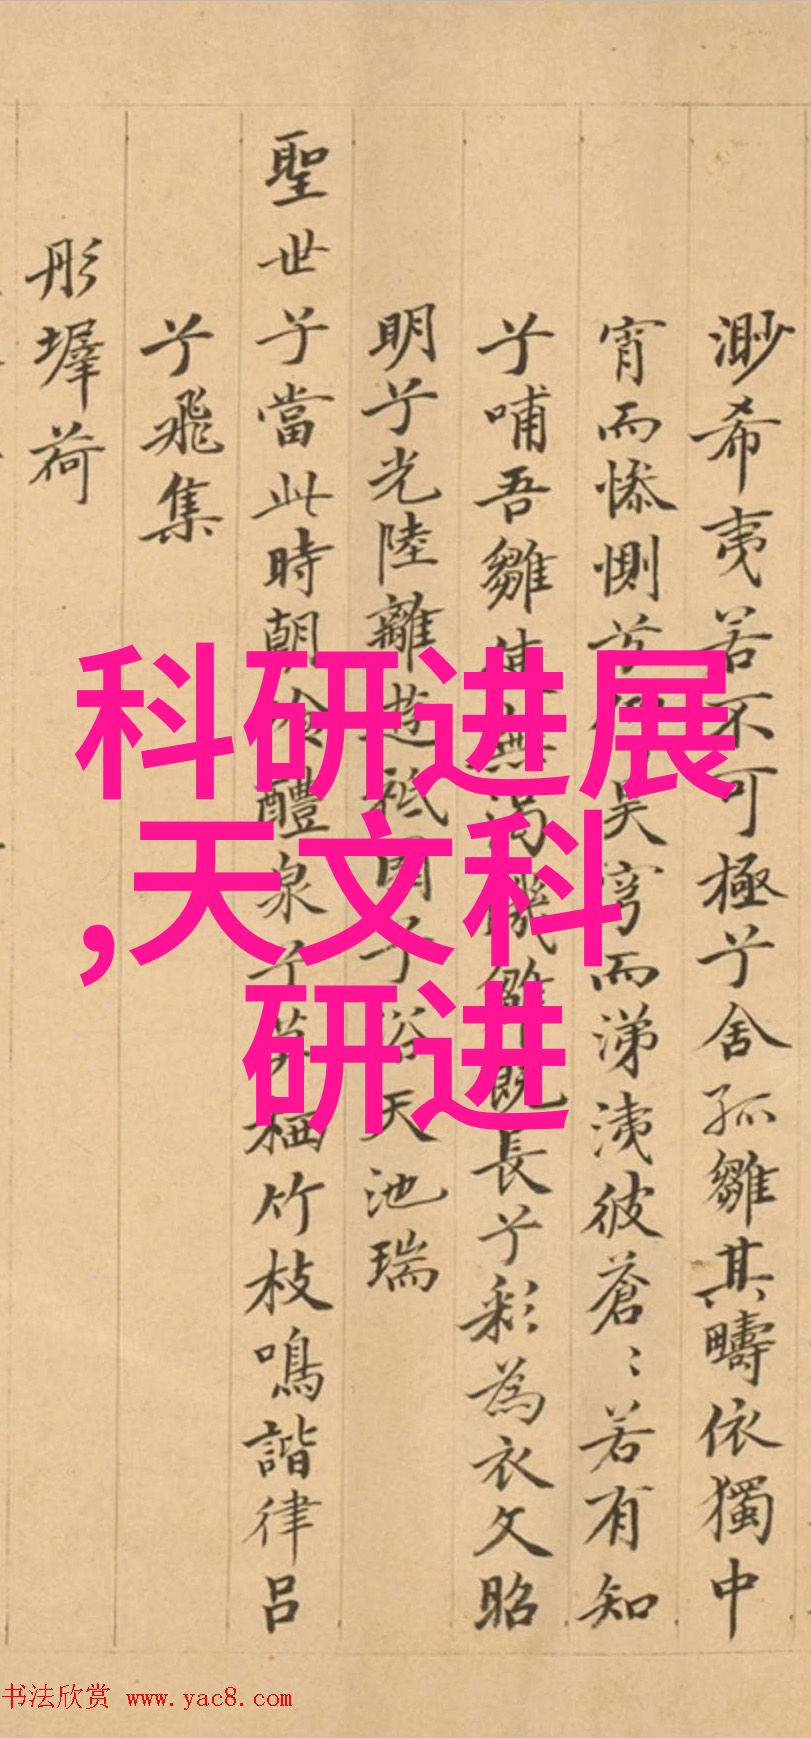 渺希夷若不可極兮舍孤雛其疇依獨中
宵而惨惻兮仰昊穹而涕洟彼蒼〻若有知
兮哺吾雛使無渴饑雛既長兮彩為衣文昭
明兮光陸離遊祗園兮浴天池瑞
聖世兮當此時朝飧醴泉兮暮栖竹枝鳴諧律呂
兮飛集
彤墀荷
科研进展
,天文科
研进
书法欣赏 www.yac8.com